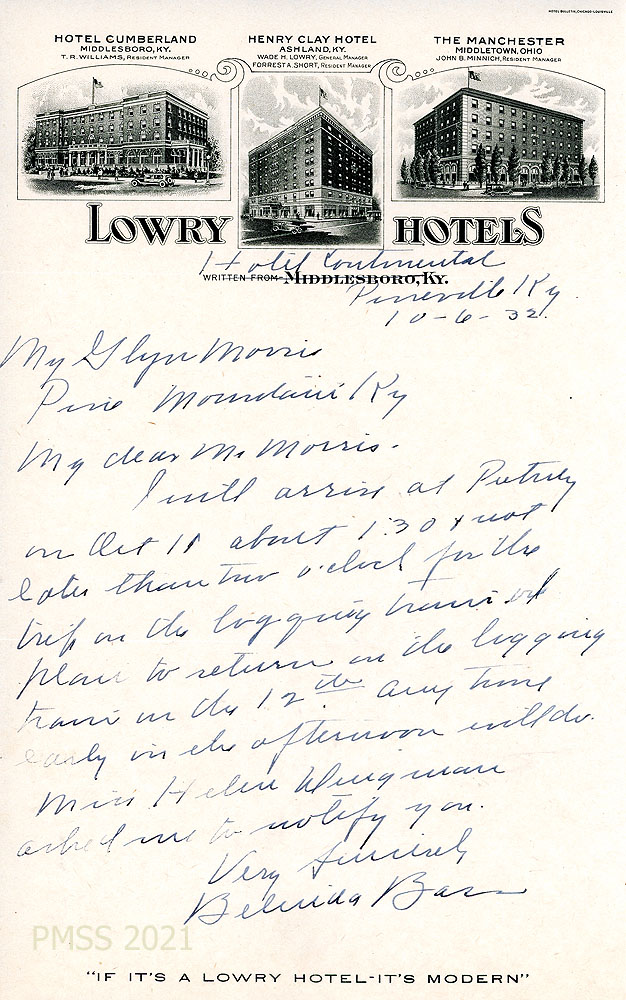 HOTEL BULLETIN, CHICAGO-LOUISVILLE
HOTEL CUMBERLAND
MIDDLESBORO, KY.
T. R. WILLIAMS, RESIDENT MANAGER
HENRY CLAY HOTEL
ASHLAND, KY.
WADE H. LOWRY, GENERAL MANAGER
FORREST A. SHORT, RESIDENT MANAGER
THE MANCHESTER
MIDDLETOWN, OHIO
JOHN B. MINNICH, RESIDENT MANAGER
LOWRY HOTELS
Hotel Continental
WRITTEN FROM MIDDLESBORO, KY.
Pineville Ky.
10-6-32.
Mr Glyn Morris
Pine Mountain Ky
My dear Mr Morris.
I will arrive at Putney
on Oct 11 about 1:30 & not
later than two o'clock for the
trip on the logging train and
plan to return on the logging
train on the 12th. Any time
early in the afternoon will do.
Miss Helen Dingman
asked me to notify you.
Very Sincerely
Belinda Bass
PMSS 2021
"IF IT'S A LOWRY HOTEL-IT'S MODERN"